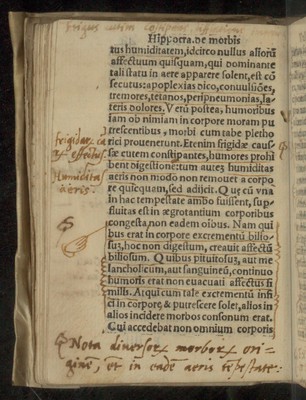 Hippocra. de morbis
tus humiditatem, idcirco nullus alioru
affectuum quisquam, qui dominante
tali statu in aere apparere solent, est co
secutus: apoplexias dico, conuulsiões,
tremores, tetanos, peripneumonias, la-
teris dolores. Verũ postea, humoribus
iam ob nimiam in corpore moram pu
trescentibus, morbi cum tabe pletho
rici prouenerunt. Etenim frigidæ causæ
frigidarũ
effectus.
sæ eutem constipantes, humores prohi
bent digestionẽ: tum autẽ humiditas
Humiditas
aeris.
aeris non modo non remouet a corpo
re quicquam, sed adijcit. Quæ cũ vna
in hac tempestate ambo fuissent, sup-
puitas est in ægrotantium corporibus
congesta, non eadem oĩbus. Nam qui
bus erat in corpore excrementũ bilio-
sũ, hoc non digestum, creauit affectũ
biliosum. Quibus pituitosũ, aut me
lancholicum, aut sanguineũ, continuo
humoris erat non euacuati affectus si
milis. At qui cum tale excrementũ insi
ci in corpore, & putrescere solet, alios in
alios incidere morbos consonum erat.
Cui accedebat non omnium corporis
Nota diuersorũ morborũ ori-
ginẽ, et in eadẽ aeris tẽpestate.